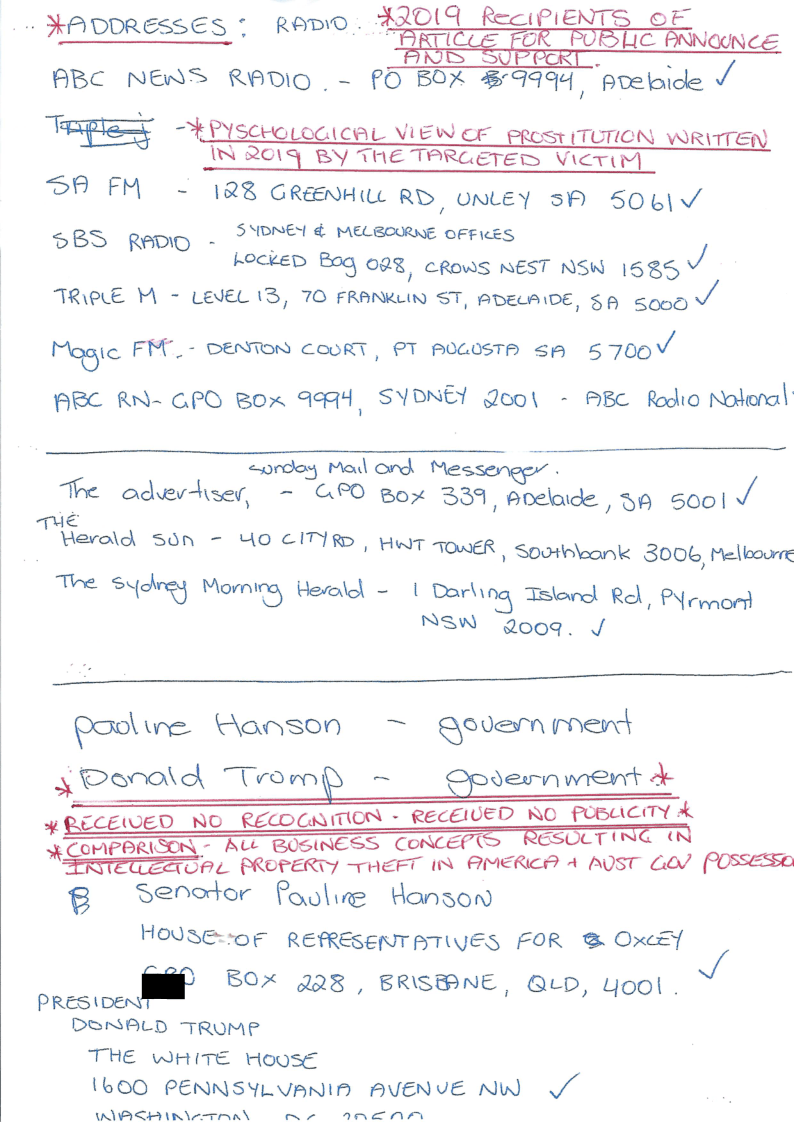 *ADDRESSES: RADIO *2019 RECIPIENTS OF
ARTICLE FOR PUBLIC ANNOUNCE
AND SUPPORT.
ABC NEWS RADIO. - PO BOX 9994, ADelaide ✓
Triple j - *PYSCHOLOGICAL VIEW OF PROSTITUTION WRITTEN
IN 2019 BY THE TARGETED VICTIM
SA FM - 128 GREENHILL RD, UNLEY SA 5061 ✓
SBS RADIO - SYDNEY & MELBOURNE OFFICES
LOCKED BOg 028, CROWS NEST NSW 1585 ✓
TRIPLE M - LEVEL 13, 70 FRANKLIN ST, ADELAIDE, SA 5000 ✓
Magic FM. - DENTON COURT, PT AUGUSTA SA 5700 ✓
ABC RN - GPO BOX 9994, SYDNEY 2001 - ABC Radio National
Sunday Mail and Messenger.
The advertiser, - GPO BOX 339, ADelaide, SA 5001 ✓
THE
Herald Sun - 40 CITY RD, HWT TOWER, Southbank 3006, Melbourne
The Sydney Morning Herald - 1 Darling Island Rd, PYrmont
NSW 2009. ✓
paoline Hanson - government
*Donald Tromp - government *
*RECEIVED NO RECOGNITION - RECEIVED NO PUBLICITY *
*COMPARISON - ALL BUSINESS CONCEPTS RESULTING IN
INTELLECTUAL PROPERTY THEFT IN AMERICA + AUST GOV POSSESSO
Senator Pauline Hanson
HOUSE OF REPRESENTATIVES FOR OXLEY
GPO BOX 228, BRISBANE, QLD, 4001. ✓
PRESIDENT
DONALD TRUMP
THE WHITE HOUSE
1600 PENNSYLVANIA AVENUE NW ✓
WASHINGTON DC 20500